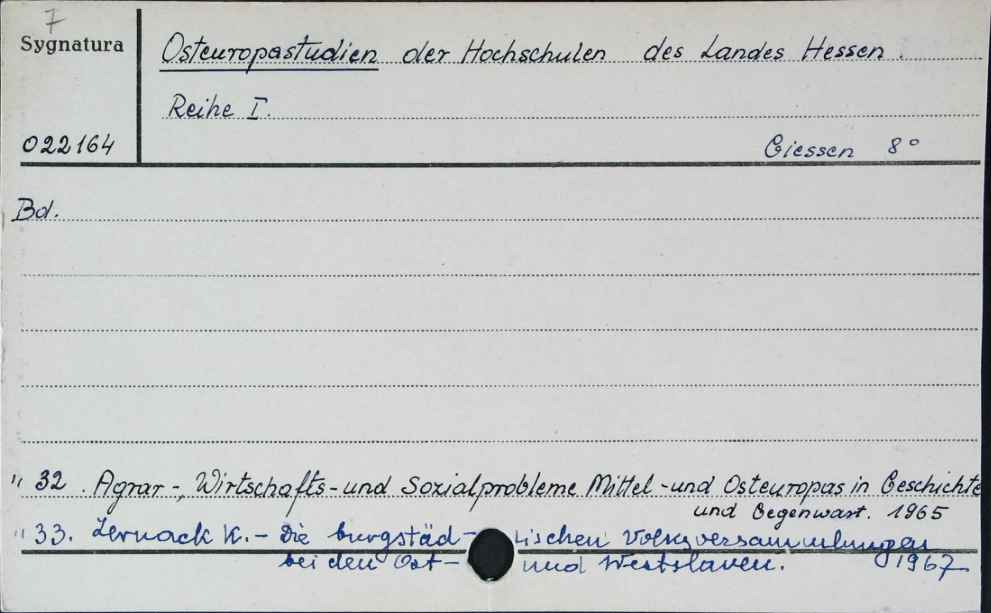 7
Sygnatura
Osteuropastudien der Hochschulen des Landes Hessen.
Reihe I.
022164
Giessen 8°
Bd.
" 32. Agrar-, Wirtschafts- und Sozialprobleme Mittel- und Osteuropas in Geschichte
und Gegenwart. 1965
" 33. Zernack K. - Die burgstäd- tischen Volksversammlungen
bei den Ost- und Westslaven. 1967